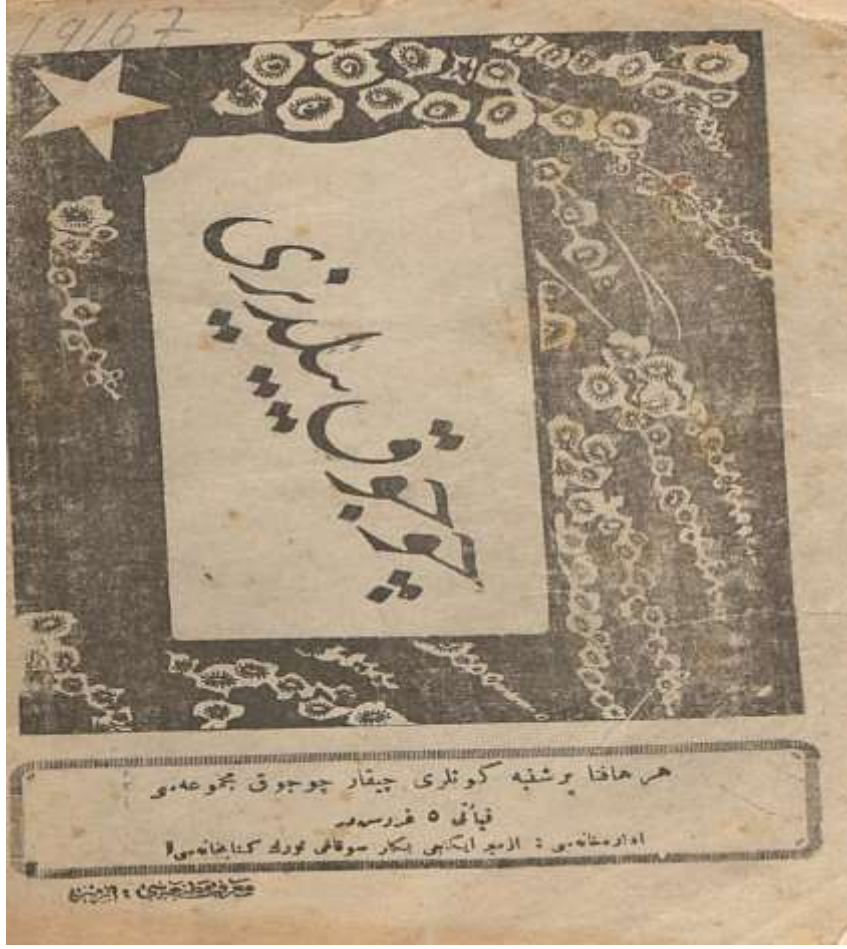 19167
چوجوق ییلدیزی
هر هافتا پرشنبه كونلری چیقار چوجوق مجموعه‌سی
فیأتی ٥ غروشدر
اداره‌خانه‌سی : ازمیر ایكنجی بكلر سوقاغی تورك كتابخانه‌سی
معارف مطبعه‌سی : ازمیر